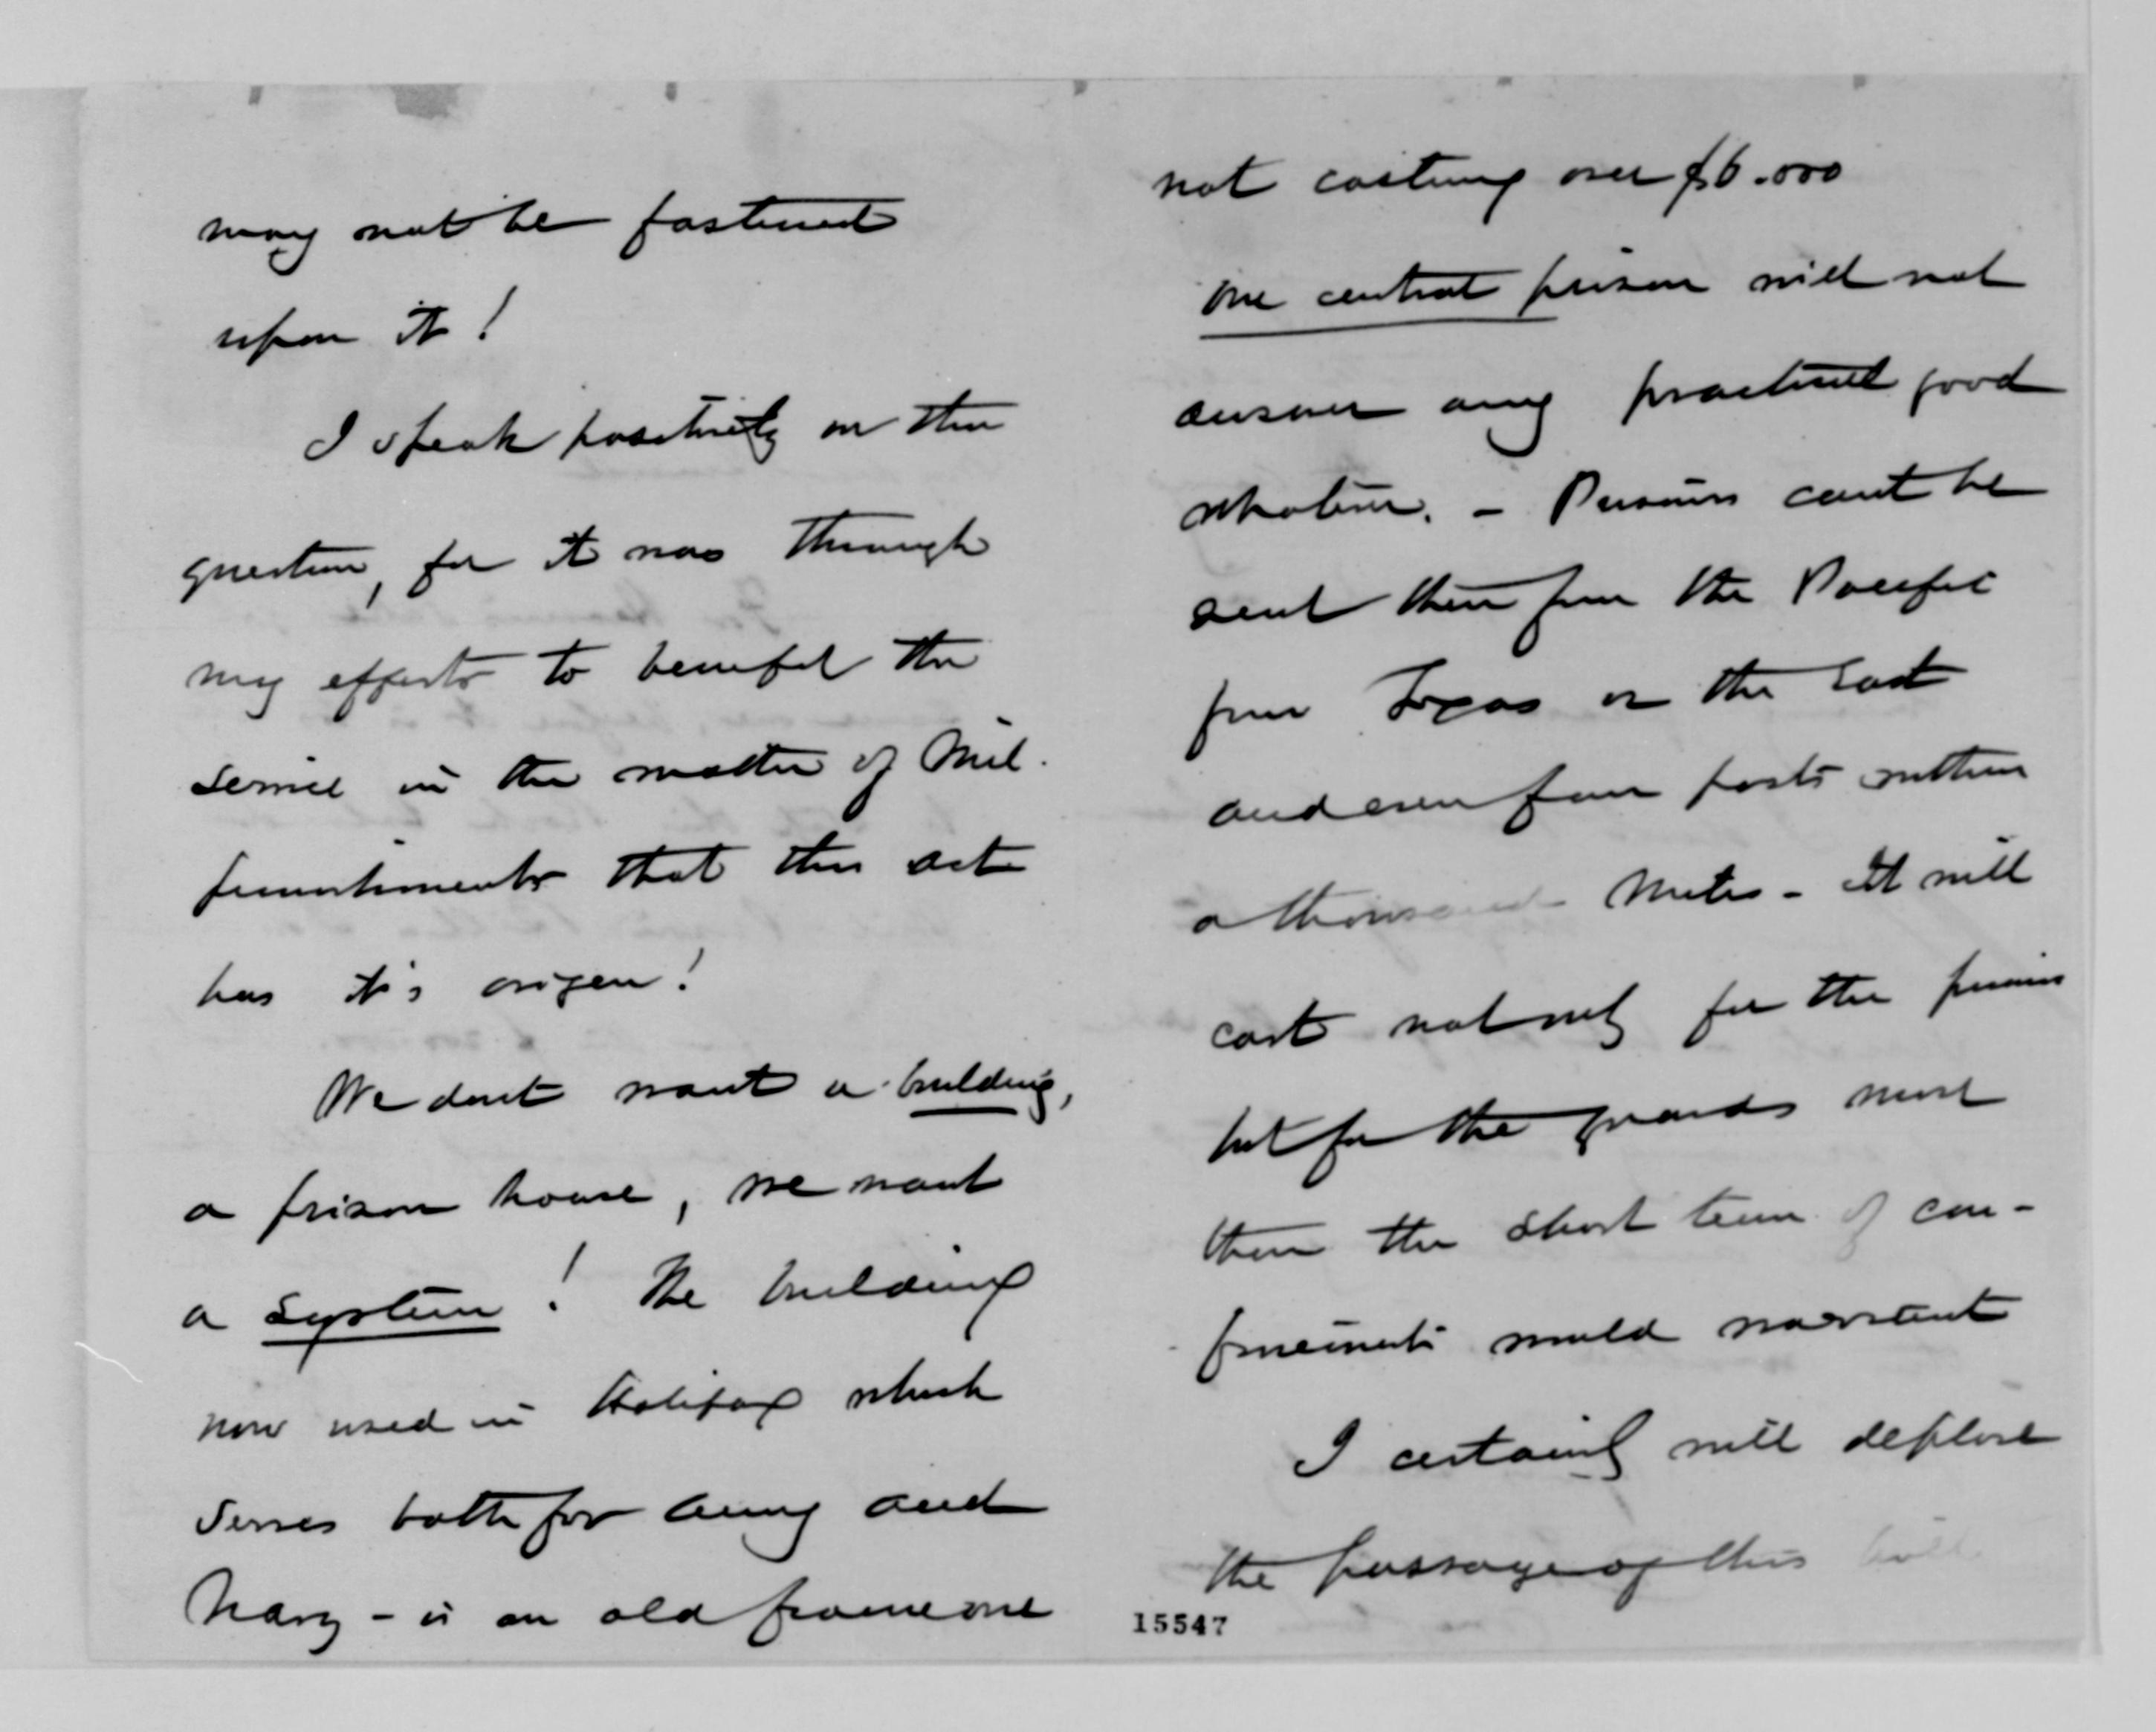 may not be fastened
upon it!
I speak positively on this
question, for it was through
my efforts to benefit the
service in the matter of Mil.
punishments that this act
has it's origen!
We dont want a building,
a prison house, we want
a system! The building
now used in Halifax which
serves both for Army and
Navy - is an old frame one
not costing over $6.000
One central prison will not
answer any practical good
whatever. - Prisoners cant be
sent there from the Pacific
from Texas or the East
and even from posts within
a thousand miles - It will
cost not only for the prisoners
but for the guards more
than the short term of con-
finements would warrant
I certainly will deplore
the passage of this bill
15547